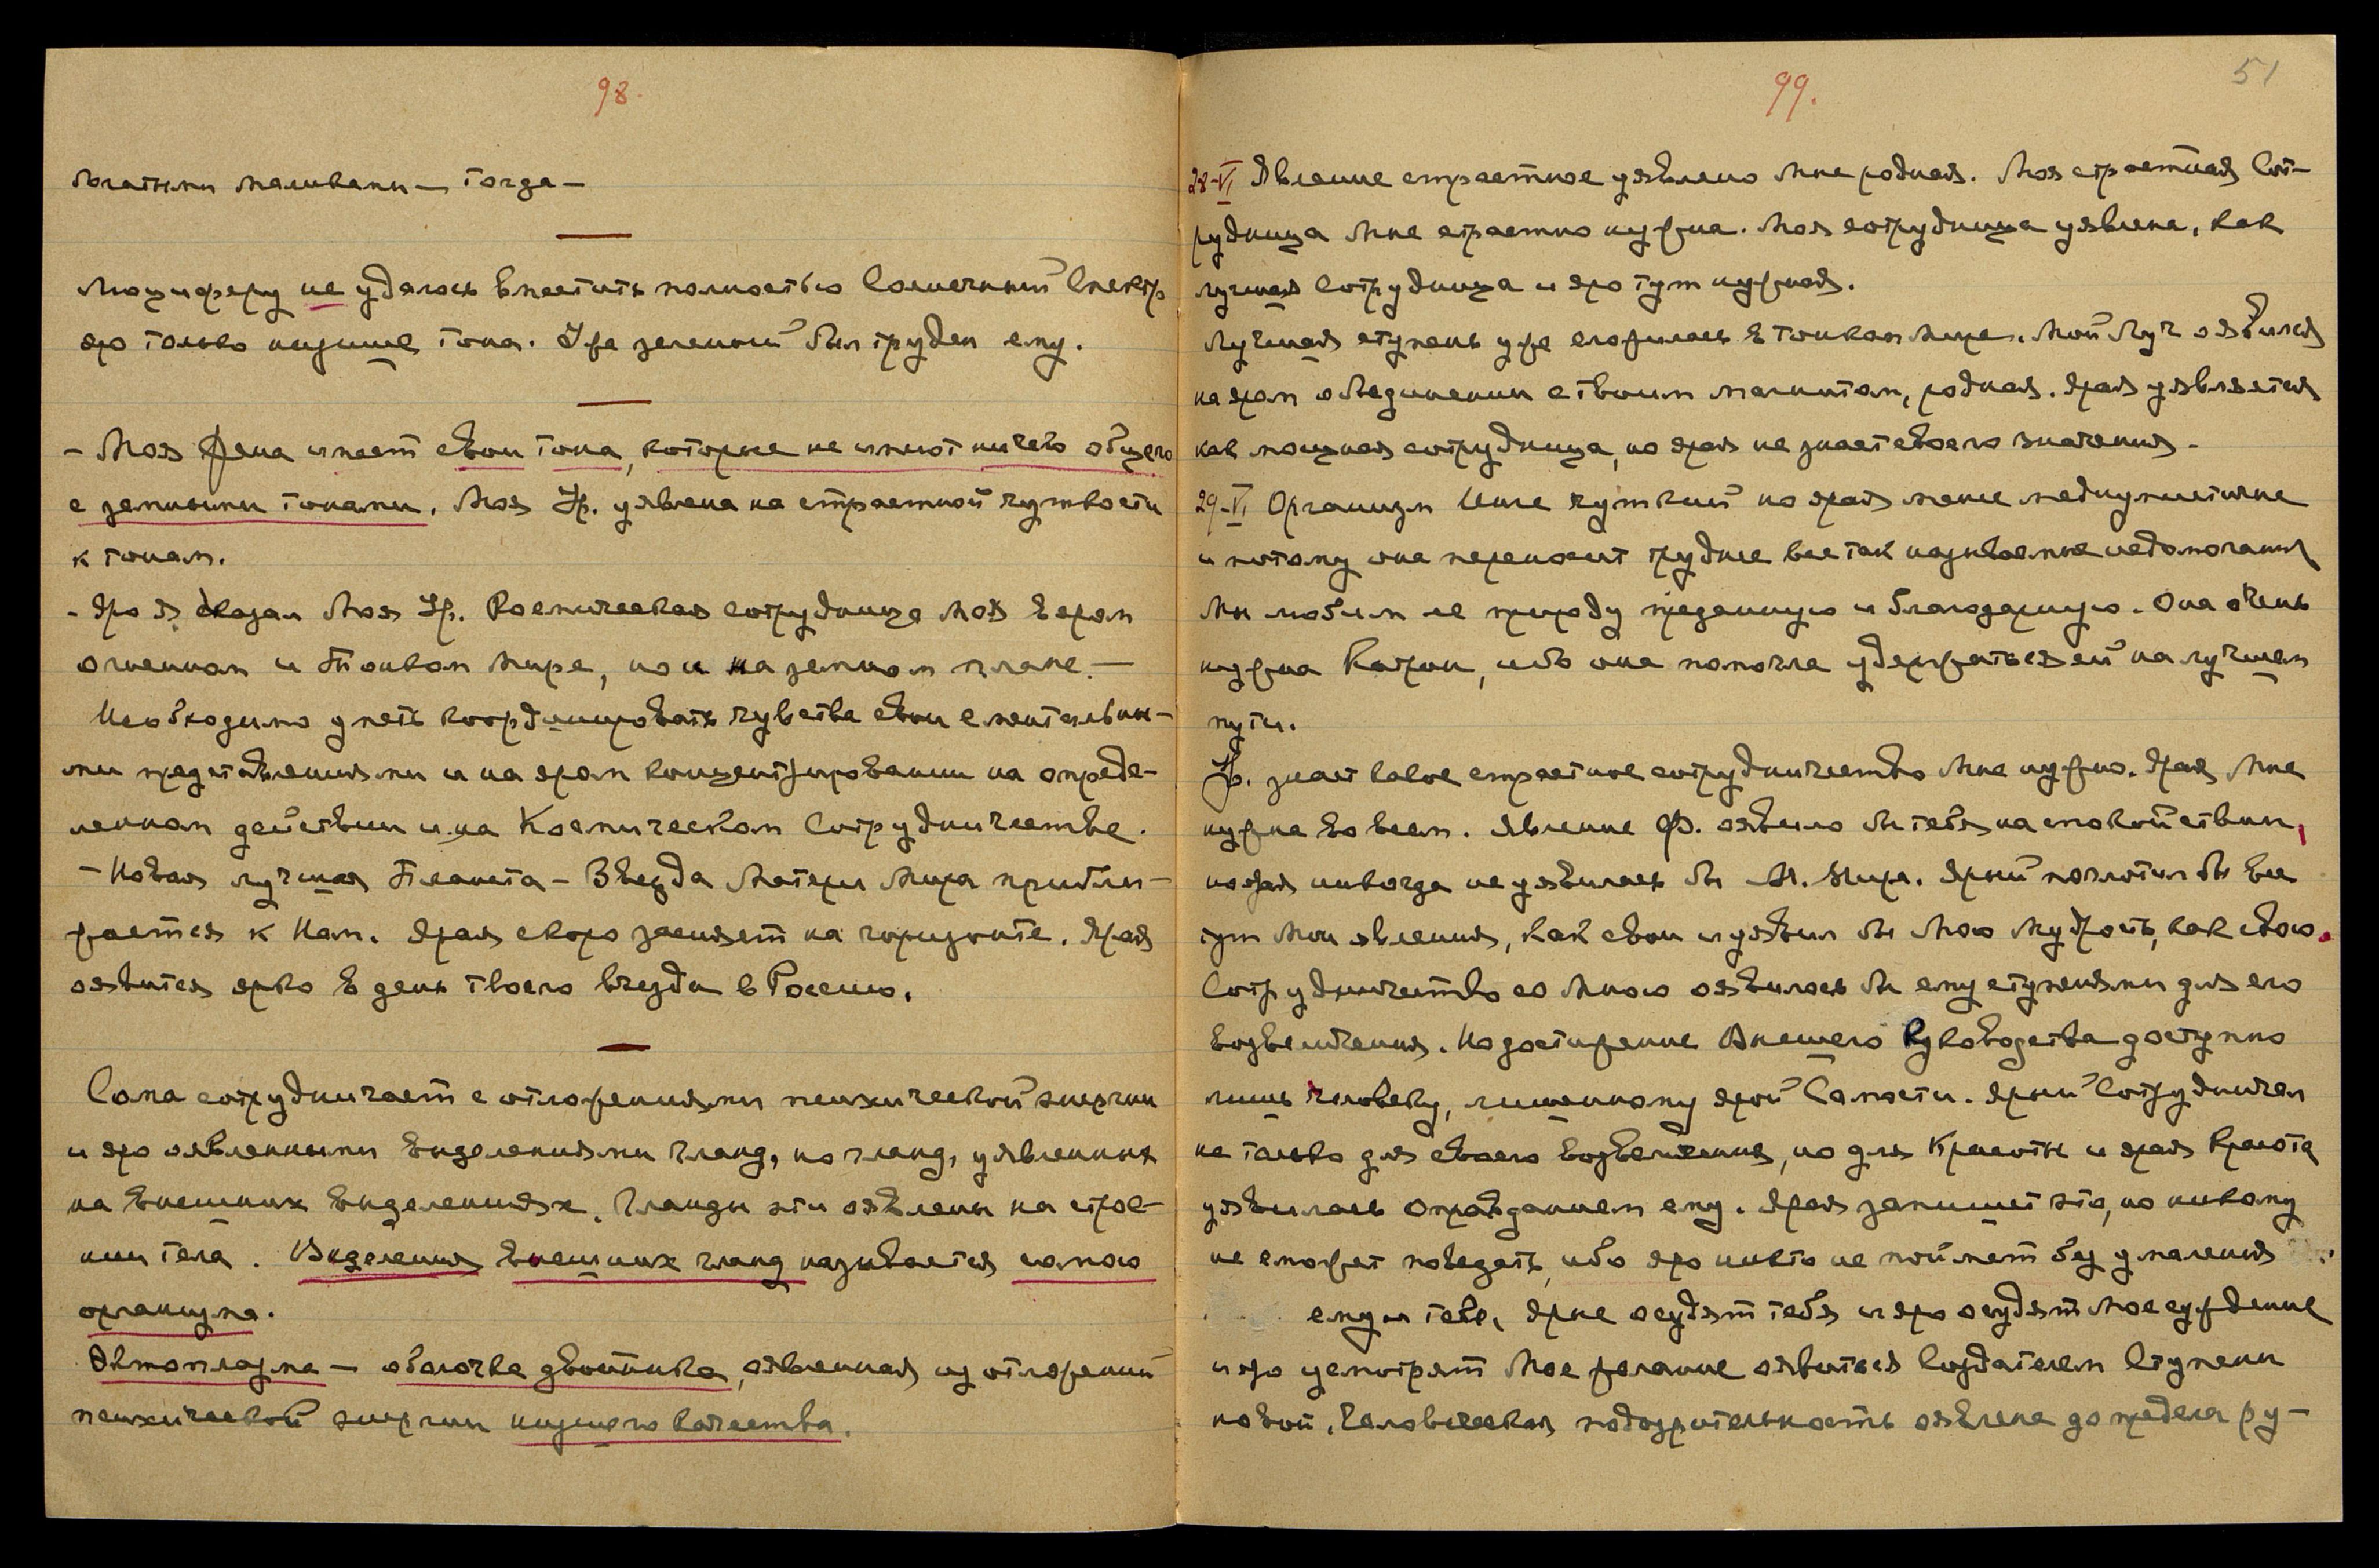 98.
богатыми магнвами — тогда —
Люциферу не удалось вместить полностью Солнечный Спектр
яро только низшие тона. Уже зеленый был труден ему.
- Моя Жена имеет свои тона, которые не имеют ничего общего
с земными тонами. Моя Ур. уявлена на страстной чуткости
к тонам.
- Яро Я сказал Моя Ур. Космическая сотрудница Моя в яром
огненном и Тонком Мире, но и на земном плане. —
Необходимо уметь координировать чувства свои с ментальны-
ми представлениями и на яром концентрировании на опреде-
ленном действии и на Космическом Сотрудничестве.
- Новая лучшая Планета - Звезда Матери Мира прибли-
жается к Нам. Ярая скоро засияет на горизонте. Ярая
оявится ярко в день твоего въезда в Россию.
Сома сотрудничает с отложениями психической энергии
и яро оявленными выделениями гланд, но гланд, уявленных
на внешних выделениях. Гланды эти оявлены на строе-
нии тела. Выделения внешних гланд называется сомою
организма.
Эктоплазма — оболочка двойника, оявленная из отложений
психической энергии низшего качества.
99.
51
28-VI Явление страстное уявлено Мне родная. Моя страстная Сот-
рудница Мне страстно нужна. Моя сотрудница уявлена, как
лучшая Сотрудница и яро тут нужная.
Лучшая ступень уже сложилась в тонком Мире. Мой Луч оявился
на яром объединении с твоим магнитом, родная. Ярая уявляется
как мощная сотрудница, но ярая не знает своего значения.
29-VI Организм Инге чуткий но ярая менее медиумистична
и потому она переносит труднее все так называемые недомогания
Мы любим ее природу преданную и благодарную. Она очень
нужна Катрин, ибо она помогла удержаться ей на лучшем
пути.
Ур. знает какое страстное сотрудничество Мне нужно. Ярая Мне
нужна во всем. Явление Ф. оявило бы тебя на спокойствии,
но ярая никогда не уявилась бы М. Мира. Ярый поглотил бы все
тут Мои явления, как свои и уявил бы Мою Мудрость, как свою.
Сотрудничество со Мною оявилось бы ему ступенями для его
возвеличения. Но достижение Высшего Руководства доступно
лишь человеку, лишенному ярой Самости. Ярый Сотрудничал
не только для своего возвеличения, но для Красоты и ярая Красота
уявилась оправданием ему. Ярая запишет это, но никому
не сможет поведать, ибо яро никто не поймет без умаления
ему и тебе, Ярые осудят тебя и яро осудят Мое суждение
и яро усмотрят Мое желание оявиться Создателем Ступени
новой. Человеческая подозрительность оявлена до предела ру-